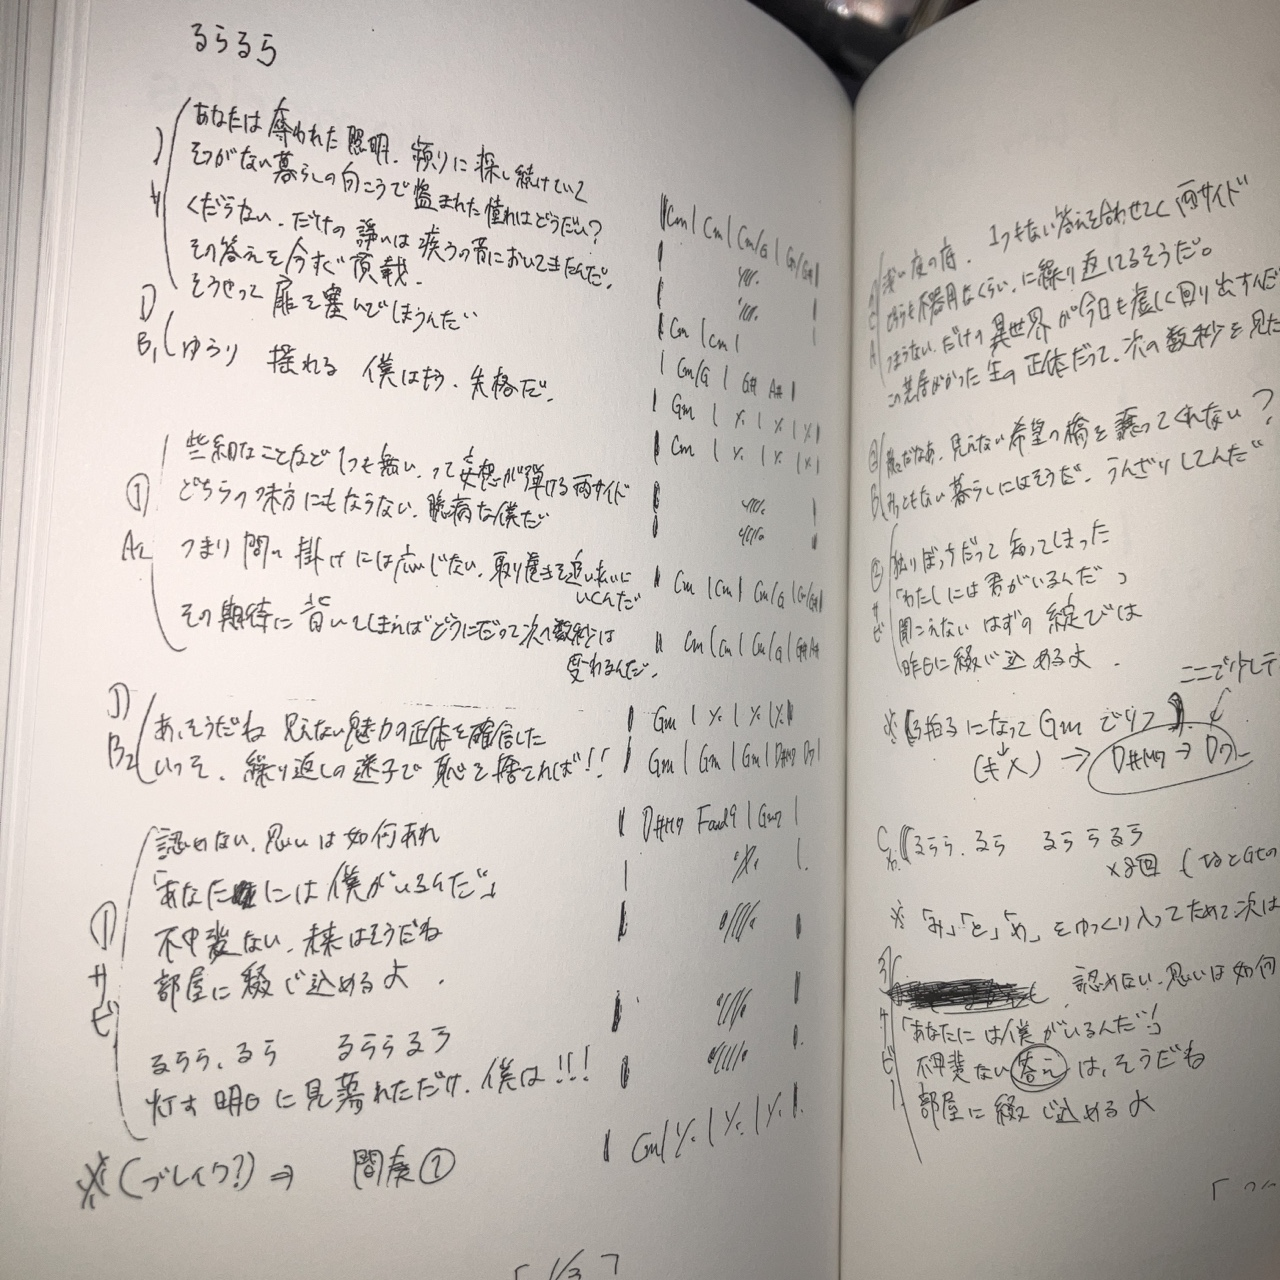 るらるら
あなたは奪われた照明、頻りに探し続けていて
そつがない暮らしの向こうで盗まれた憧れはどうだい?
くだらない、だけの諍いは疾うの昔においてきたんだ。
その答えを今すぐ頂戴。
そうやって扉を塞いでしまうんだ
① B1 ゆらり 揺れる 僕はもう、失格だ。
① A2
些細なことなど1つも無い、って妄想が弾ける両サイド
どちらの味方にもならない、臆病な僕だ
つまり問い掛けには応じない、取り巻きを追い払いに
いくんだ
その期待に背いてしまえばどうにだって次の数秒は
変わるんだ。
① B2
あ、そうだね 見えない魅力の正体を確信した
いっそ、繰り返しの迷子で恥を捨てれば!!
① サビ
認めない、思いは如何あれ
「あなたには僕がいるんだ」
不甲斐ない、未来はそうだね
部屋に綴じ込めるよ.
るらら、るら るららるら
灯す明日に見蕩れただけ、僕は!!!
※(ブレイク?)⇒ 間奏①
Cm | Cm | Cm/G | Gm/G# |
Cm | Cm |
Cm/G | G# A# |
Gm | ٪ | ٪ | ٪ |
Cm | ٪ | ٪ | ٪ |
Cm | Cm | Cm/G | Gm/G# |
Cm | Cm | Cm/G | G# A#
Gm | ٪ | ٪ | ٪
Gm | Gm | Gm | D#M7 D7 |
D#M7 Fadd9 | Gm7 |
Cm | ٪ | ٪ | ٪ |
② A
浅い夜の底、1つもない答えを合わせてく両サイド
どうも不器用なくらい、に繰り返してるそうだ。
つまらない、だけの異世界が今日も虚しく回り出すんだ
この芝居がかった生の正体だって、次の数秒を見た
② B
だなあ、見えない希望の橋を 
ってくれない?
みっともない暮らしにはそうだ、うんざりしてんだ
② サビ
独りぼっちだって知ってしまった
「わたしには君がいるんだ」
聞こえないはずの綻びは
昨日に綴じ込めるよ.
ここで少し
※ 3拍子になってGmで
(キメ) → D#M7 → D7
C るらら、るら るららるら
×8回
※「み」「と」「め」をゆっくり入ってためて次は
③ サビ
認めない、思いは如何
「あなたには僕がいるんだ」
不甲斐ない答えは、そうだね
部屋に綴じ込めるよ